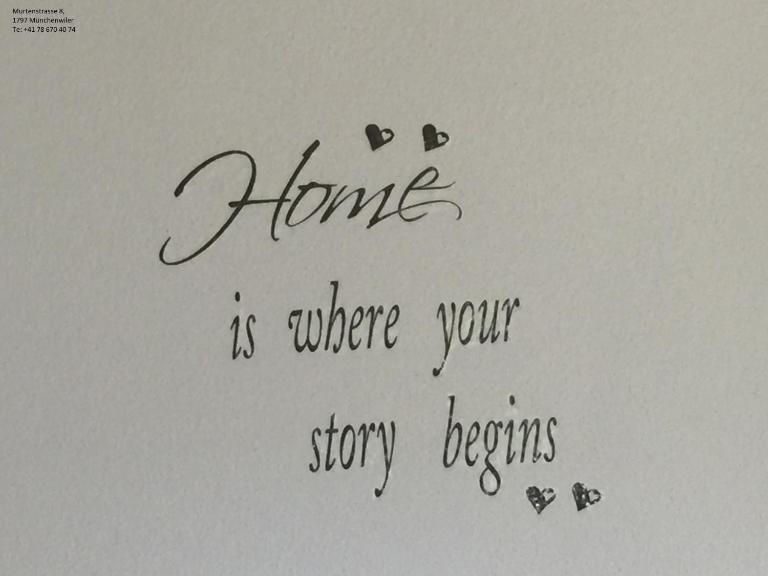 Murtenstrasse 8,
1797 Münchenwiler
Te: +41 78 670 40 74
Home
is where your
story begins